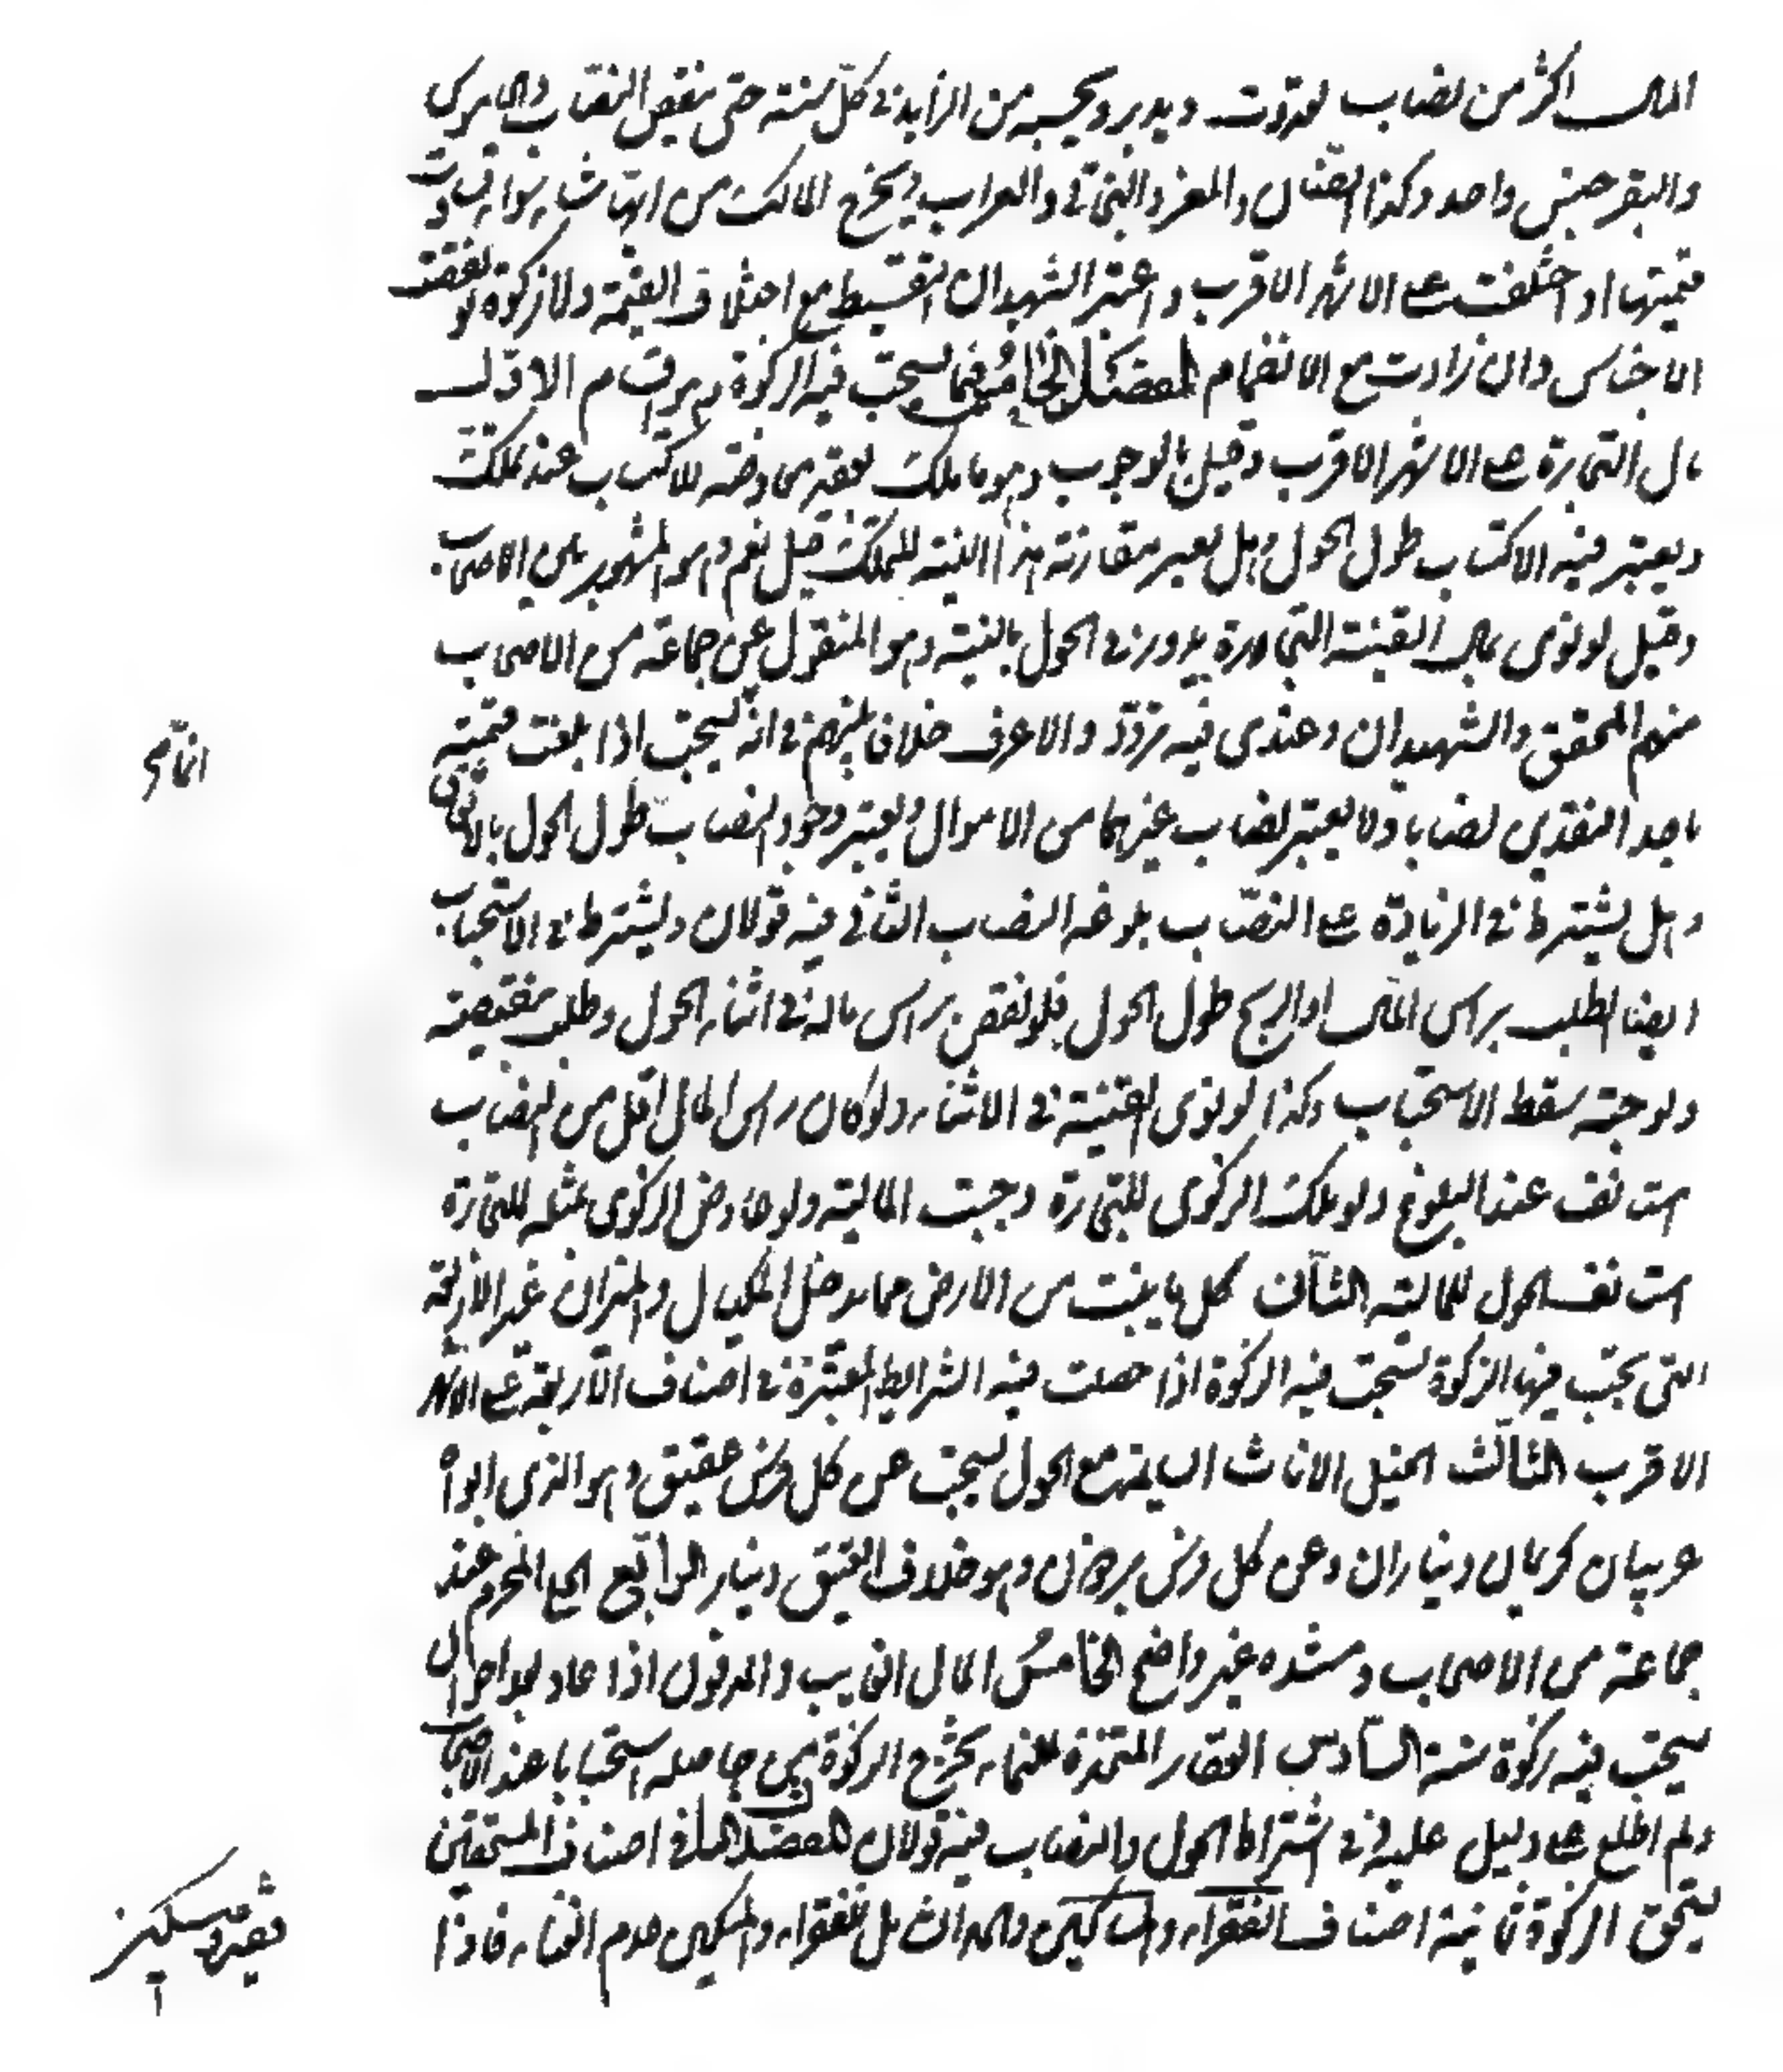 المال اكثر من نصاب تعددت ويدير ويجبر من الزايد في كل سنة حتى ينقص النصاب والجاموس
والبقر جنس واحد وكذا الضان والمعز والبخاتي والعراب ويخرج المالك من ايها شاء سواء تساوت
قيمتها او اختلفت على الاشهر الاقرب واعتبر الشهيدان التقسيط مع اختلاف القيمة ولا زكوة لو نقصت
الاجناس وان زادت مع الانضمام الفصل الخامس فيما يستحب فيه الزكوة وهو اقسام الاول
مال التجارة على الاشهر الاقرب وقيل بالوجوب وهو ما ملك بعقد معاوضة للاكتساب عند التملك
ويعتبر فيه الاكتساب طول الحول وهل يعتبر مقارنة هذا النية للتملك قيل نعم وهو المشهور بين الاصحاب
وقيل لو نوى بمال القنية التجارة يدور في الحول بالنية وهو المنقول عن جماعة من الاصحاب
منهم المحقق والشهيدان وعندي فيه تردد ولا اعرف خلافا بينهم في انه يستحب اذا بلغت قيمته
باحد النقدين نصابا ولا يعتبر نصاب غيرهما من الاموال ويعتبر وجود النصاب طول الحول بالاتفاق
وهل يشترط في الزيادة على النصاب بلوغه النصاب الثاني فيه قولان ويشترط في الاستحباب
ايضا الطلب براس المال او الربح طول الحول فلو نقص راس ماله في اثناء الحول وطلب بنقيصته
ولو حبة سقط الاستحباب وكذا لو نوى القنية في الاثناء ولو كان راس المال اقل من النصاب
استانف عند البلوغ ولو ملك الزكوي للتجارة وجبت المالية ولو عاوض الزكوي بمثله للتجارة
استانف الحول للمالية الثاني كل ما ينبت من الارض مما يدخل المكيال والميزان غير الاربعة
التي يجب فيها الزكوة يستحب فيه الزكوة اذا حصلت فيه الشرايط المعتبرة في اصناف الاربعة على الاشهر
الاقرب الثالث الخيل الاناث السايمة مع الحول يستحب عن كل فرس عتيق وهو الذي ابواه
عربيان كريمان ديناران وعن كل فرس برذون وهو خلاف العتيق دينار الرابع الحلي المحرم عند
جماعة من الاصحاب ومستنده غير واضح الخامس المال الغايب والمدفون اذا عاد بعد احوال
يستحب فيه زكوة سنة السادس العقار المتخذة للنماء يخرج الزكوة من حاصله استحبابا عند الاصحاب
ولم اطلع على دليل عليه وفي اشتراط الحول والنصاب فيه قولان الفصل السادس في اصناف المستحقين
يستحق الزكوة ثمانية اصناف الفقراء والمساكين والحد الشامل للفقراء والمسكين عدم الغناء فاذا
فقير و مسكين